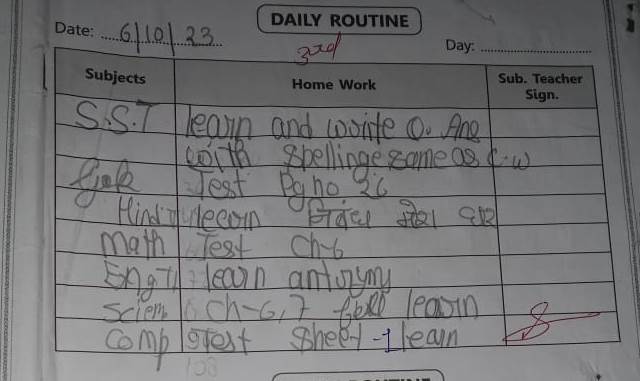 DAILY ROUTINE
Date: 6/10/23
3rd
Day:
Subjects Home Work Sub. Teacher Sign.
S.S.T learn and write Q. Ans
with spellinge same as c.w
Test Pg no 36
Hindi learn निबंध मेरा घर
Math Test Ch-6
Eng learn antonyms
Scien Ch-6,7 full learn
Comp Test Sheet-1 learn
DAILY ROUTINE